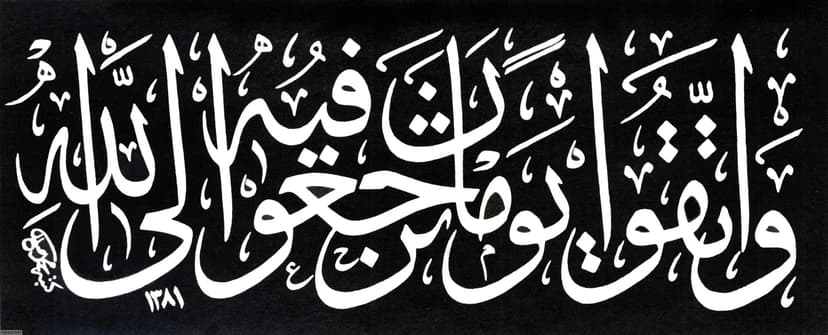 واتّقوا يوماً ترجعون فيه الى اللّٰه
١٣٨١